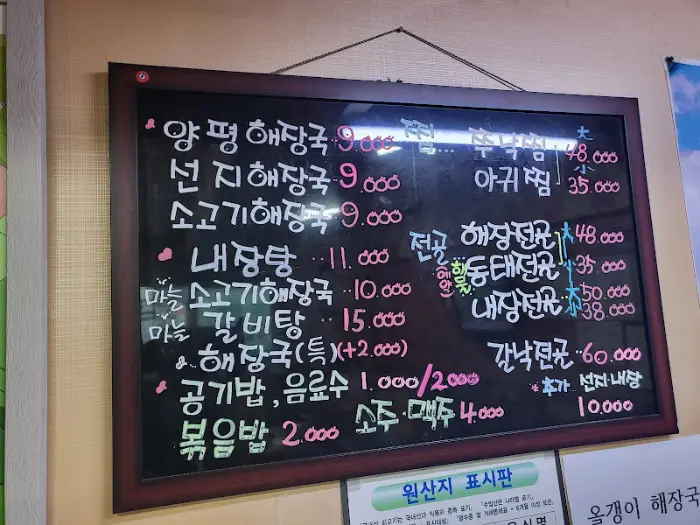 양평해장국 9.000
선지해장국 9.000
소고기해장국 9.000
내장탕 11.000
마늘 소고기해장국 10.000
마늘 갈비탕 15.000
해장국(특)(+2.000)
공기밥, 음료수 1.000/2000
볶음밥 2.000
소주·맥주 4.000
찜 쭈낙찜 大 48.000
아귀찜 小 35.000
전골 해장전골 大 48.000
해물 동태전골 小 35.000
내장전골 大 50.000
小 38.000
갈낙전골 60.000
추가 선지·내장
10.000
원산지 표시판
올갱이 해장국